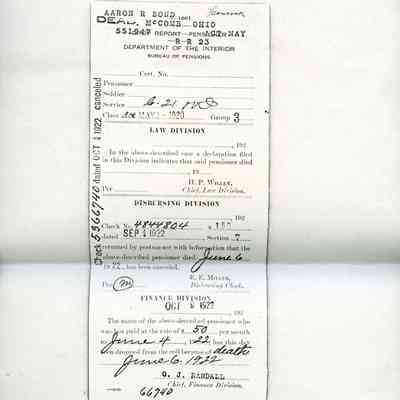 AARON R BOND
DEAL. McCOMB OHIO
551947 REPORT—PENSIONER OCT MAY
R R 23
DEPARTMENT OF THE INTERIOR
BUREAU OF PENSIONS
Cert. No.
Pensioner
Soldier
Service
Class Act MAY 1 - 1920 Group 3
LAW DIVISION
, 192
In the above-described case a declaration filed
in this Division indicates that said pensioner died
, 19
Per
Chief, Law Division.
DISBURSING DIVISION
, 192
Check No. 4844804 $
dated SEP 4 1922 Section 7
returned by postmaster with information that the
above-described pensioner died June 6
1922, has been canceled.
Per
Disbursing Clerk.
Check 5366740 dated OCT 4 1922 canceled
FINANCE DIVISION
OCT 1922
The name of the above-described pensioner who
was last paid at the rate of $ 50 per month
to June 4, 1922 has this day
been dropped from the roll because of death
June 6, 1922
O. J. RANDALL
Chief, Finance Division.
66740